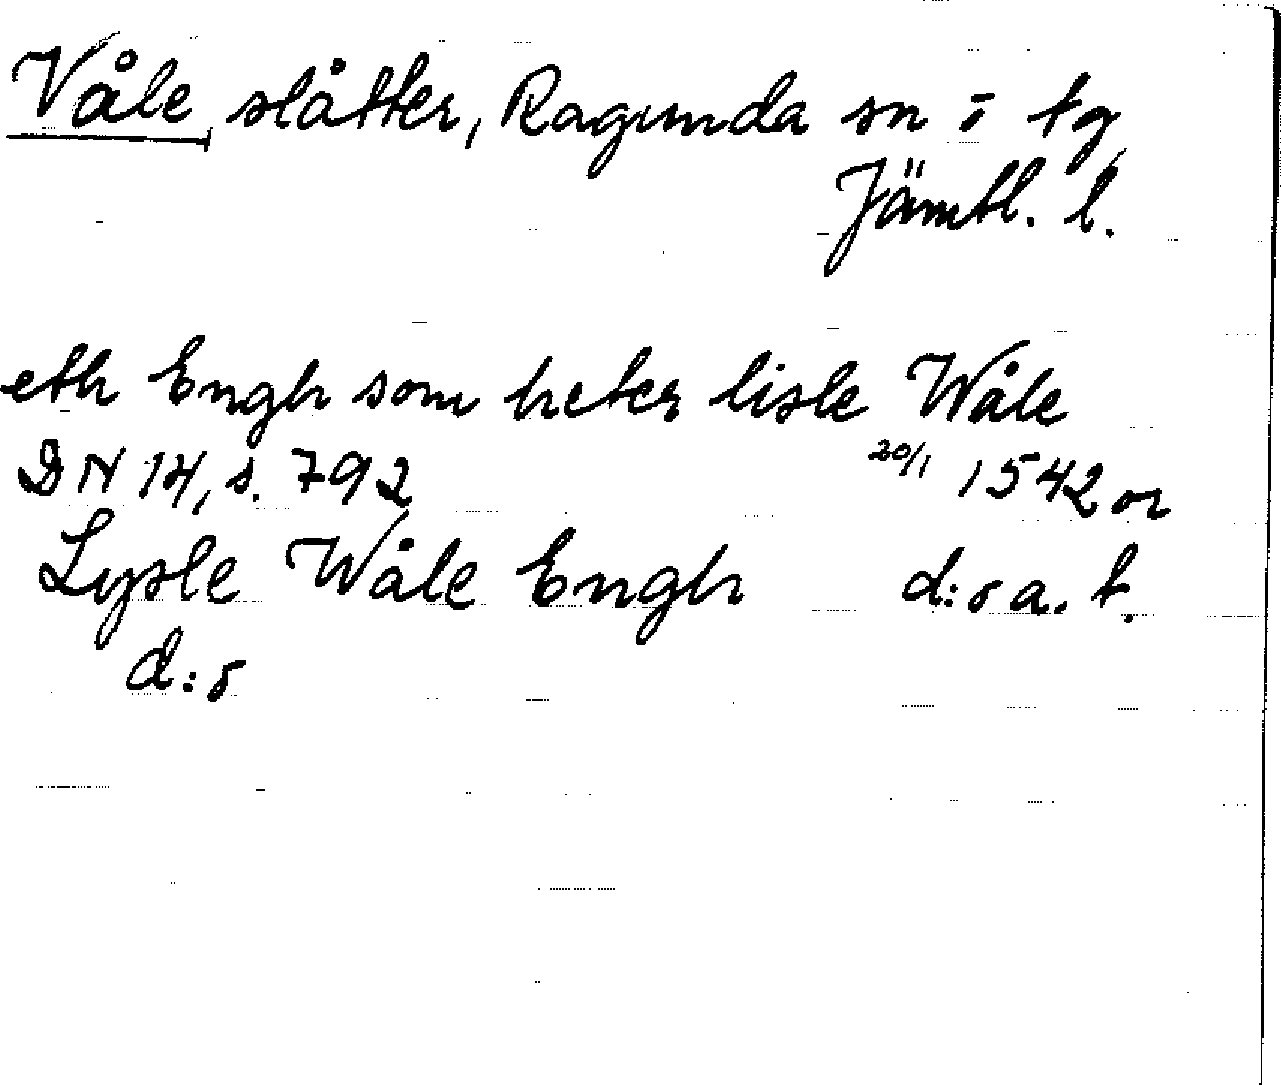 Våle, slåtter, Ragunda sn o tg
Jämtl. l.
eth Engh som heter lisle Wåle
DN 14, s. 792 20/1 1542 or
Lysle Wåle Engh d:o a. t.
d:o